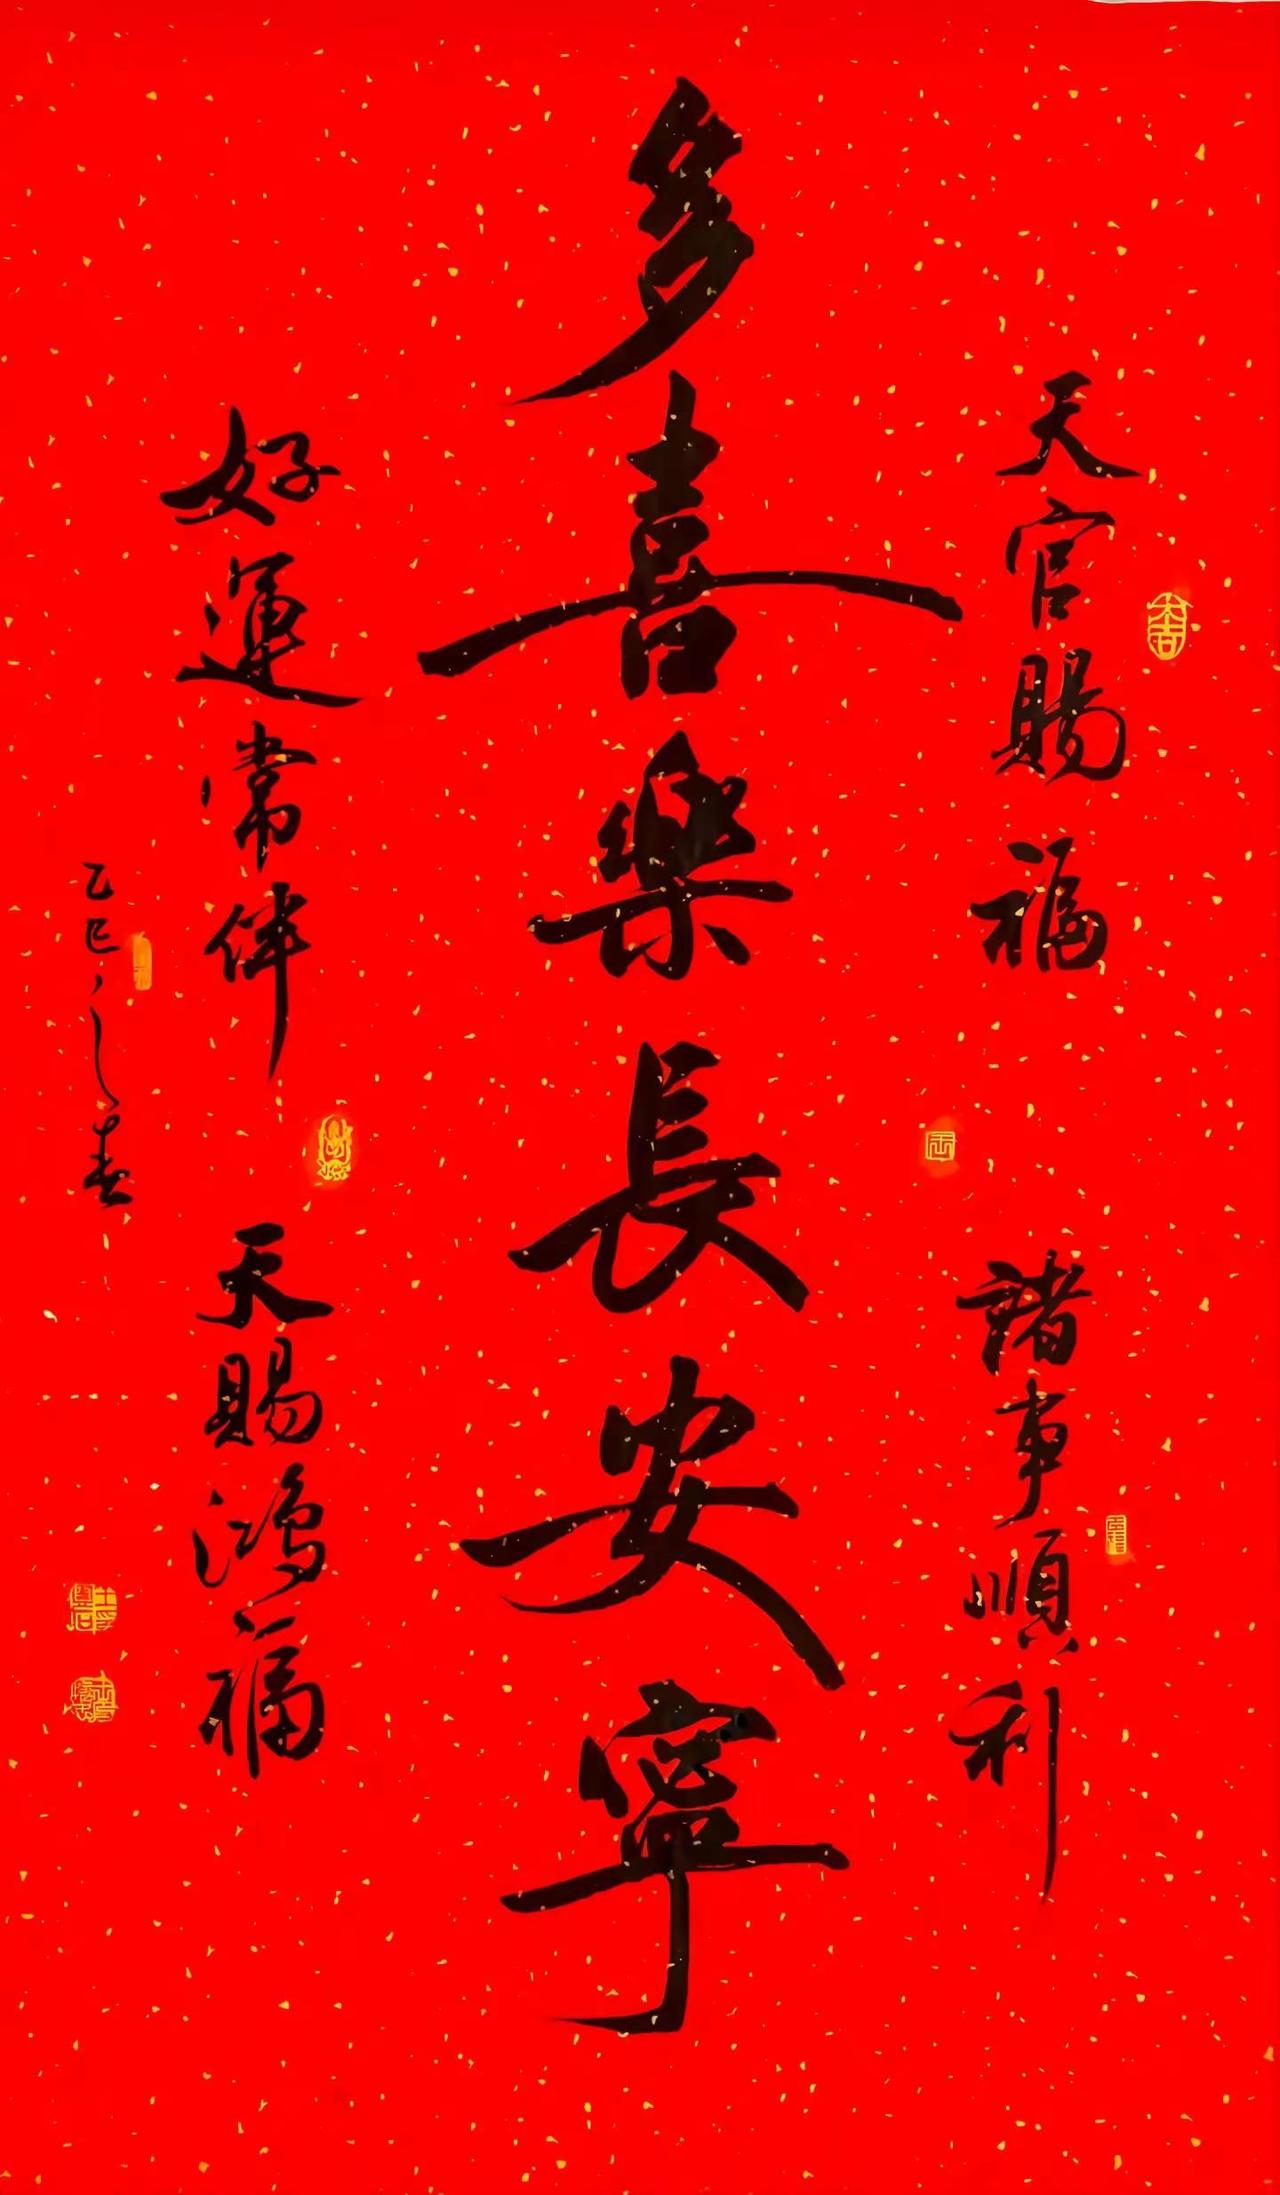 天官賜福
諸事順利
多喜樂長安寧
好運常伴
天賜鴻福
乙巳之春
大吉